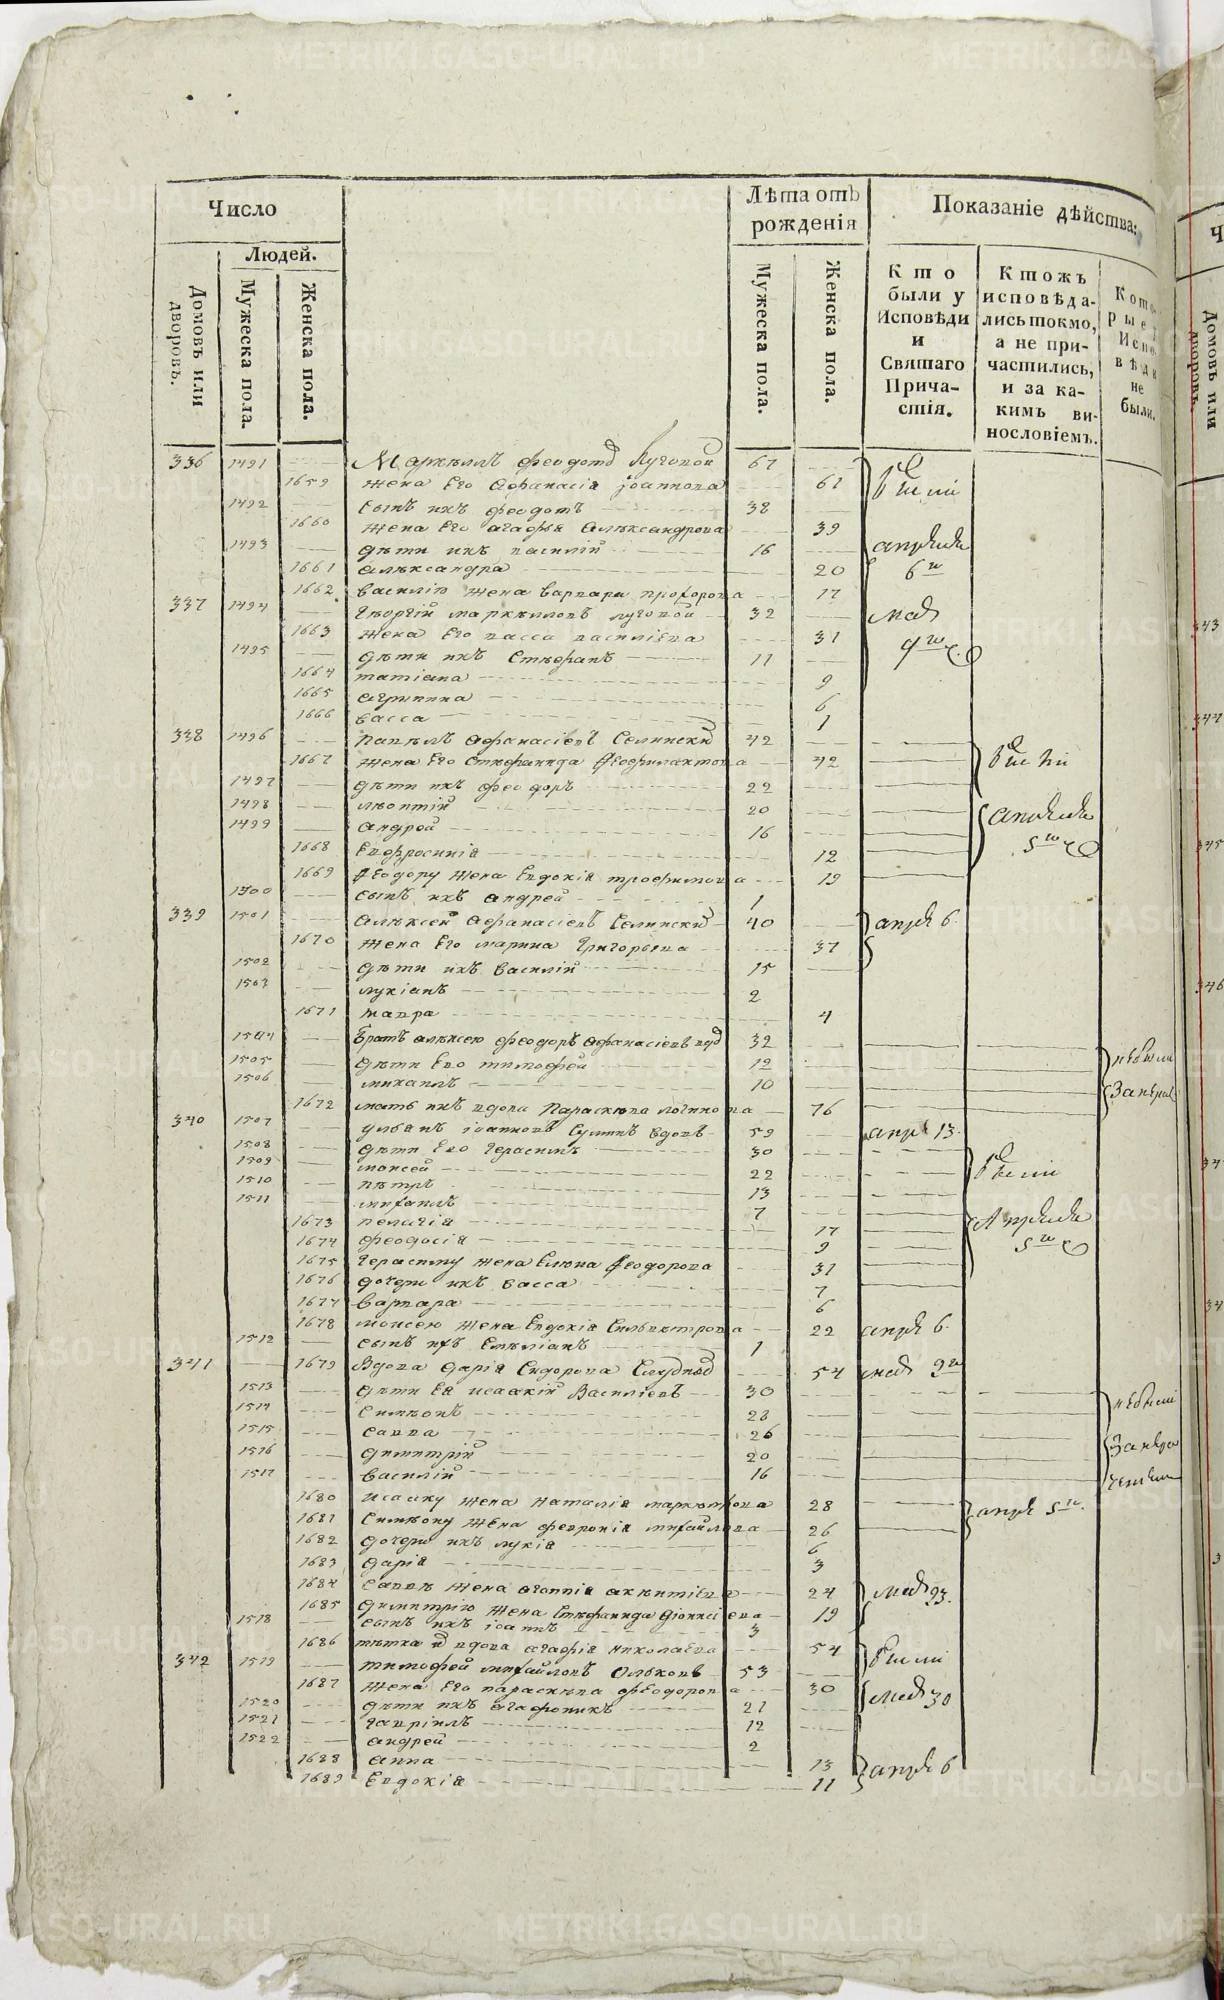 Число
Лѣта отъ рожденія
Показаніе дѣйства:
Людей.
Домовъ или дворовъ.
Мужеска пола.
Женска пола.
Мужеска пола.
Женска пола.
Кто были у Исповѣди и Святаго Причастія.
Ктожъ исповѣдались токмо, а не причастились, и за какимъ винословіемъ.
Которые Исповѣди не были.
336 1491 Маркеллъ Феодотов Луговой 67
1659 жена Его Афанасія Іоаннова 61 были
1492 сынъ ихъ Феодотъ 38
1660 жена Его Агафья Алѣксандрова 39
1493 дѣти ихъ василій 16 апреля
1661 алѣксандра 20 6го
1662 василію жена варвара прохорова 17
337 1494 Георгій маркелловъ луговой 32 мая
1663 жена Его васса василіева 31 9го
1495 дѣти ихъ Стефанъ 11
1664 татіана 9
1665 агрипина 6
1666 васса 1
338 1496 Павелъ Афанасіевъ Селински 42
1667 жена Его Стефанида Феофилактова 42 были
1497 дѣти ихъ феодоръ 22
1498 леонтій 20 апреля
1499 андрей 16 5го
1668 Евфросинія 12
1669 Феодору жена Евдокія трофимова 19
1500 сынъ ихъ андрей 1
339 1501 Алѣксей Афанасіевъ Селински 40 апреля 6.
1670 жена Его марина Григорьева 37
1502 дѣти ихъ василій 15
1503 лукіанъ 2
1671 мавра 4
1504 братъ алѣксею феодоръ афанасіевъ 32 небыли
1505 дѣти Его тимофей 12
1506 михаилъ 10
1672 мать ихъ вдова Параскева логинова 76
340 1507 ульянъ іоанновъ Сулинъ вдовъ 59 апреля 13.
1508 дѣти Его Герасимъ 30
1509 моисей 22 были
1510 петръ 13
1511 михаилъ 7
1673 пелагія 17 Апреля
1674 феодосія 9 5го
1675 герасиму жена Елена Феодорова 31
1676 дочери ихъ васса 7
1677 варвара 6
1678 моисею жена Евдокія Сильвестрова 22 апреля 6.
1512 сынъ ихъ Емеліанъ 1
341 1679 Вдова Дарія Сидорова 54 мая 9го
1513 дѣти Ея исаакій Василіевъ 30 небыли
1514 Симеонъ 28
1515 савва 26
1516 димитрій 20
1517 василій 16
1680 исааку жена Наталія 28 апреля 5го.
1681 Симеону жена февронія михайлова 26
1682 дочери ихъ лукія 6
1683 дарія 3
1684 саввѣ жена агапія акентіева 24 мая 23.
1685 димитрію жена Стефанида Діонисіева 19
1518 сынъ ихъ іоаннъ 3
1686 тетка вдова агафія николаева 54 были
342 1519 тимофей михайловъ Ольковъ 53
1687 жена Его параскева феодорова 30 мая 30
1520 дѣти ихъ агафоникъ 21
1521 гавріилъ 12
1522 андрей 2
1688 анна 13 апреля 6
1689 Евдокія 11